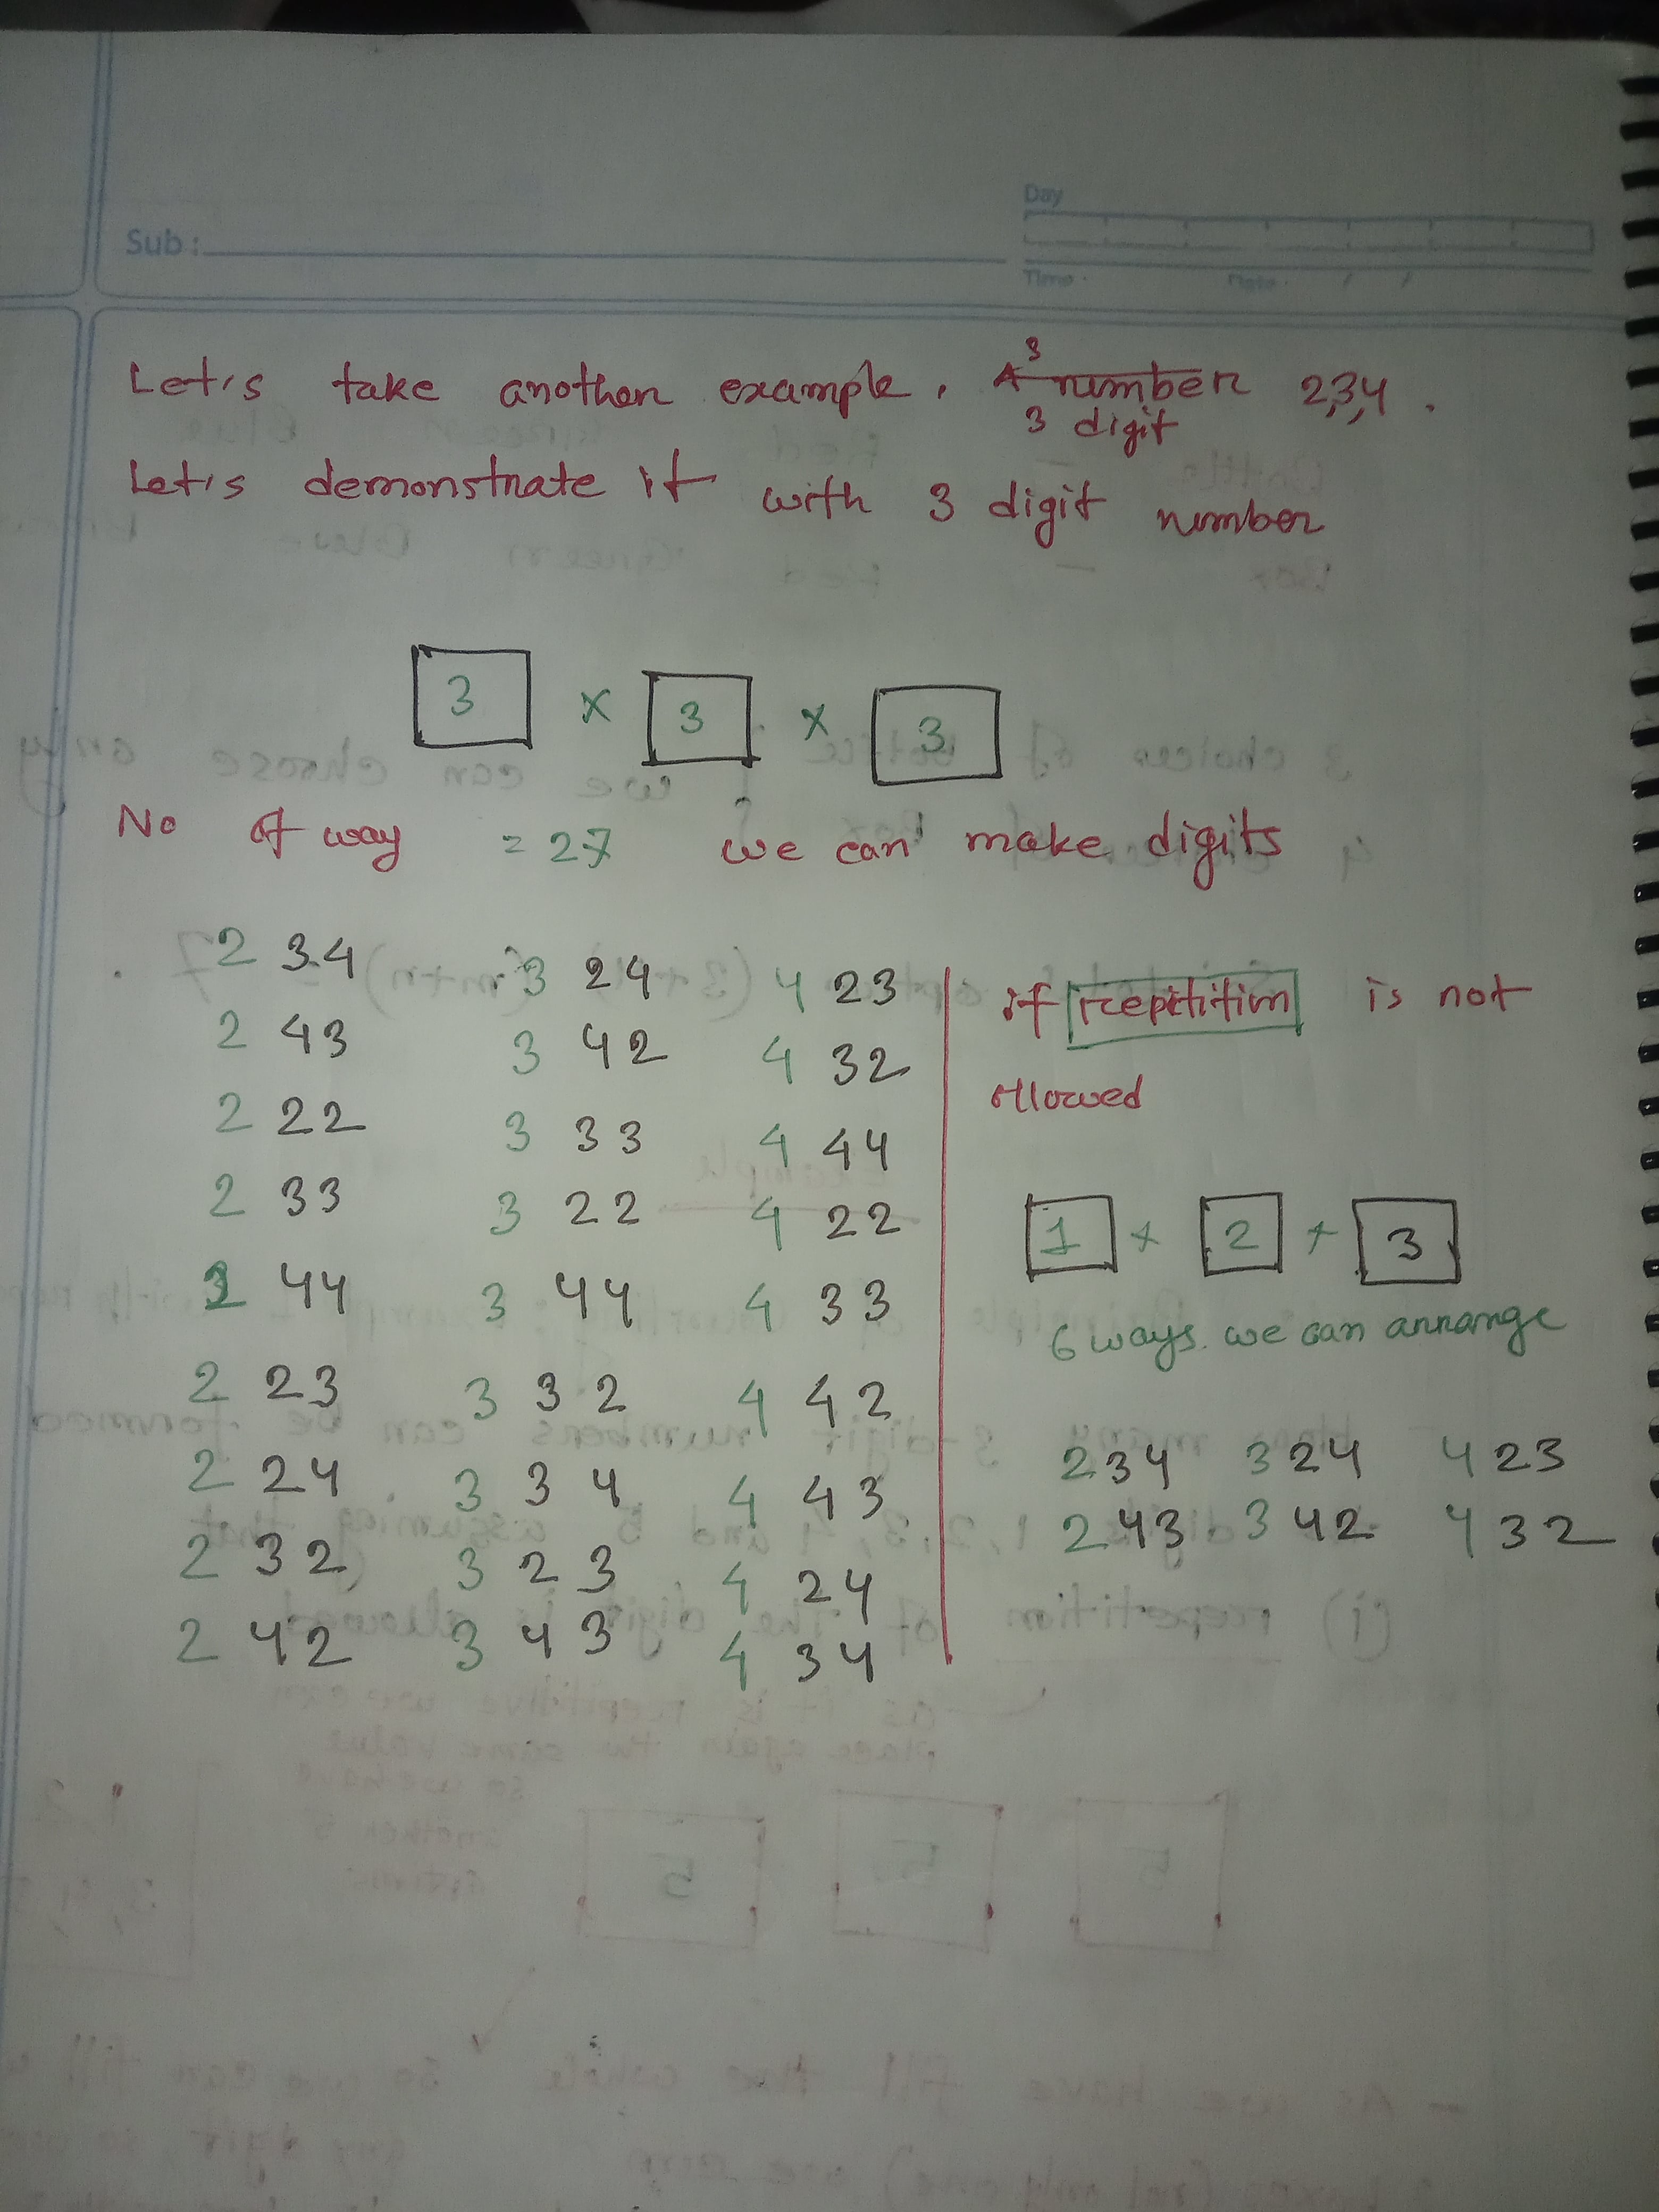 Day
Sub :
Time · Date · / /
Let's take another example. 3 number 2,3,4 .
3 digit
Let's demonstrate it with 3 digit number
3 x 3 x 3
No of way = 27 we can make digits
2 34 3 24 4 23
2 43 3 42 4 32
2 22 3 33 4 44
2 33 3 22 4 22
2 44 3 44 4 33
2 23 3 32 4 42
2 24 3 34 4 43
2 32 3 23 4 24
2 42 3 43 4 34
if repitition is not
allowed
1 x 2 + 3
6 ways. we can arrange
234 324 423
243 342 432